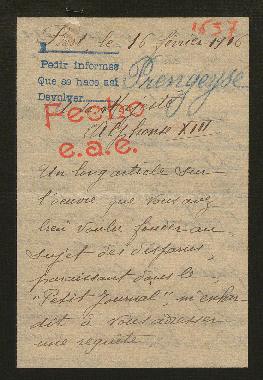 1657
le 16 février 1916
Pedir informes
Que se hace así
Devolver
Prengeyse
Fecho
e.a.e.
Alphonse XIII
Un long article sur
l'œuvre que vous avez
bien voulu fonder au
sujet des disparus,
paraissant dans le
"Petit Journal", m'enhar-
dit à vous adresser
une requête